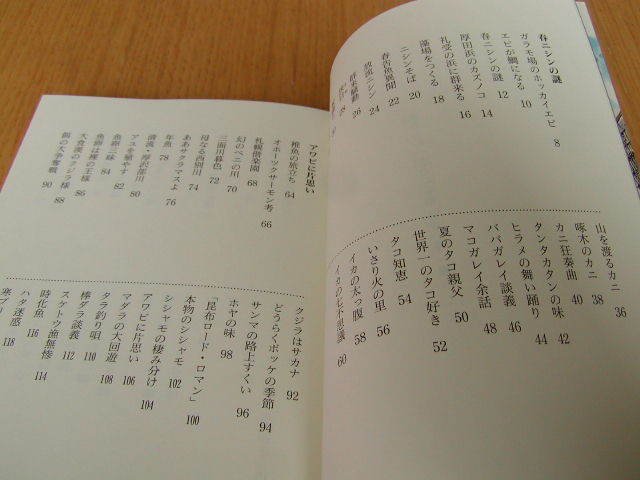 春ニシンの謎
ガラモ場のホッカイエビ 8
エビが鯛になる 10
春ニシンの謎 12
厚田浜のカズノコ 14
礼受の浜に群来る 16
藻場をつくる 18
ニシンそば 20
春告魚異聞 22
放流ニシン 24
26
28
山を渡るカニ 36
啄木のカニ 38
カニ狂奏曲 40
タンタカタンの味 42
ヒラメの舞い踊り 44
ババガレイ談義 46
マコガレイ余話 48
夏のタコ親父 50
世界一のタコ好き 52
タコ知恵 54
いさり火の里 56
イカの太っ腹 58
イカの七不思議 60
アワビに片思い
稚魚の旅立ち 64
オホーツクサーモン考 66
札幌偕楽園 68
幻のベニの川 70
三面川暮色 72
母なる西別川 74
ああサクラマスよ 76
年魚 78
清流・厚沢部川 80
アユを殖やす 82
魚卵三昧 84
魚卵は裸の王様 86
大食漢のクジラ様 88
餌の大争奪戦 90
クジラはサカナ 92
どうらくボッケの季節 94
サンマの路上すくい 96
ホヤの味 98
「昆布ロード・ロマン」 100
本物のシシャモ 102
シシャモの棲み分け 104
アワビに片思い 106
マダラの大回遊 108
タラ釣り唄 110
棒ダラ談義 112
スケトウ漁無惨 114
時化魚 116
ハタ迷惑 118
寒ブリ